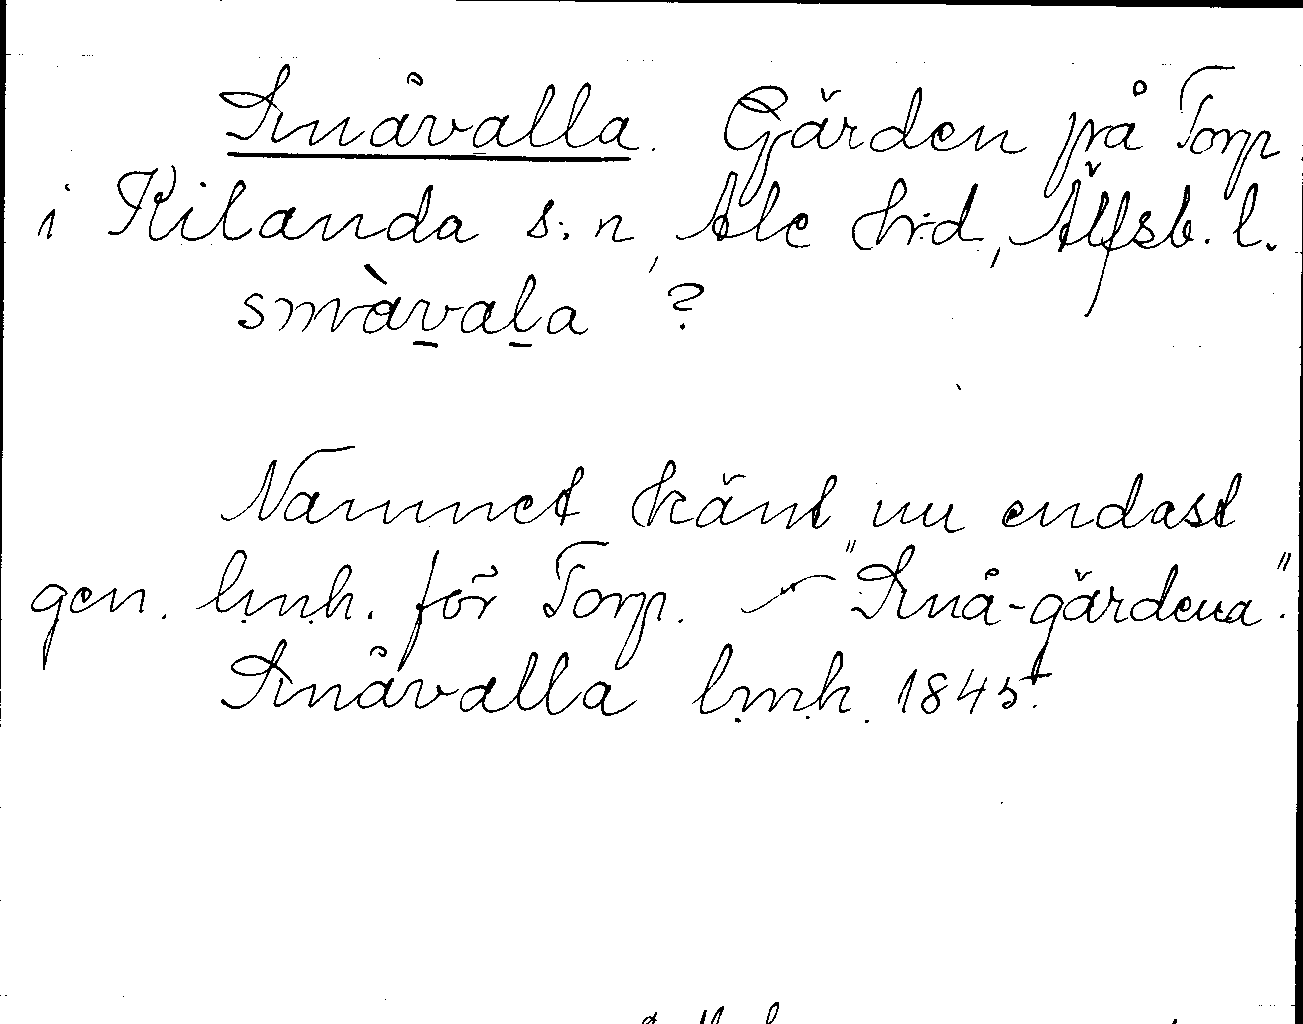 Småvalla. Gärden på Torp
i Kilanda s:n, Ale hrd, Älfsb. l.
smàvala ?
Namnet känt nu endast
gen. lmh. för Torp. "Små-gärdena".
Småvalla lmh. 1845.